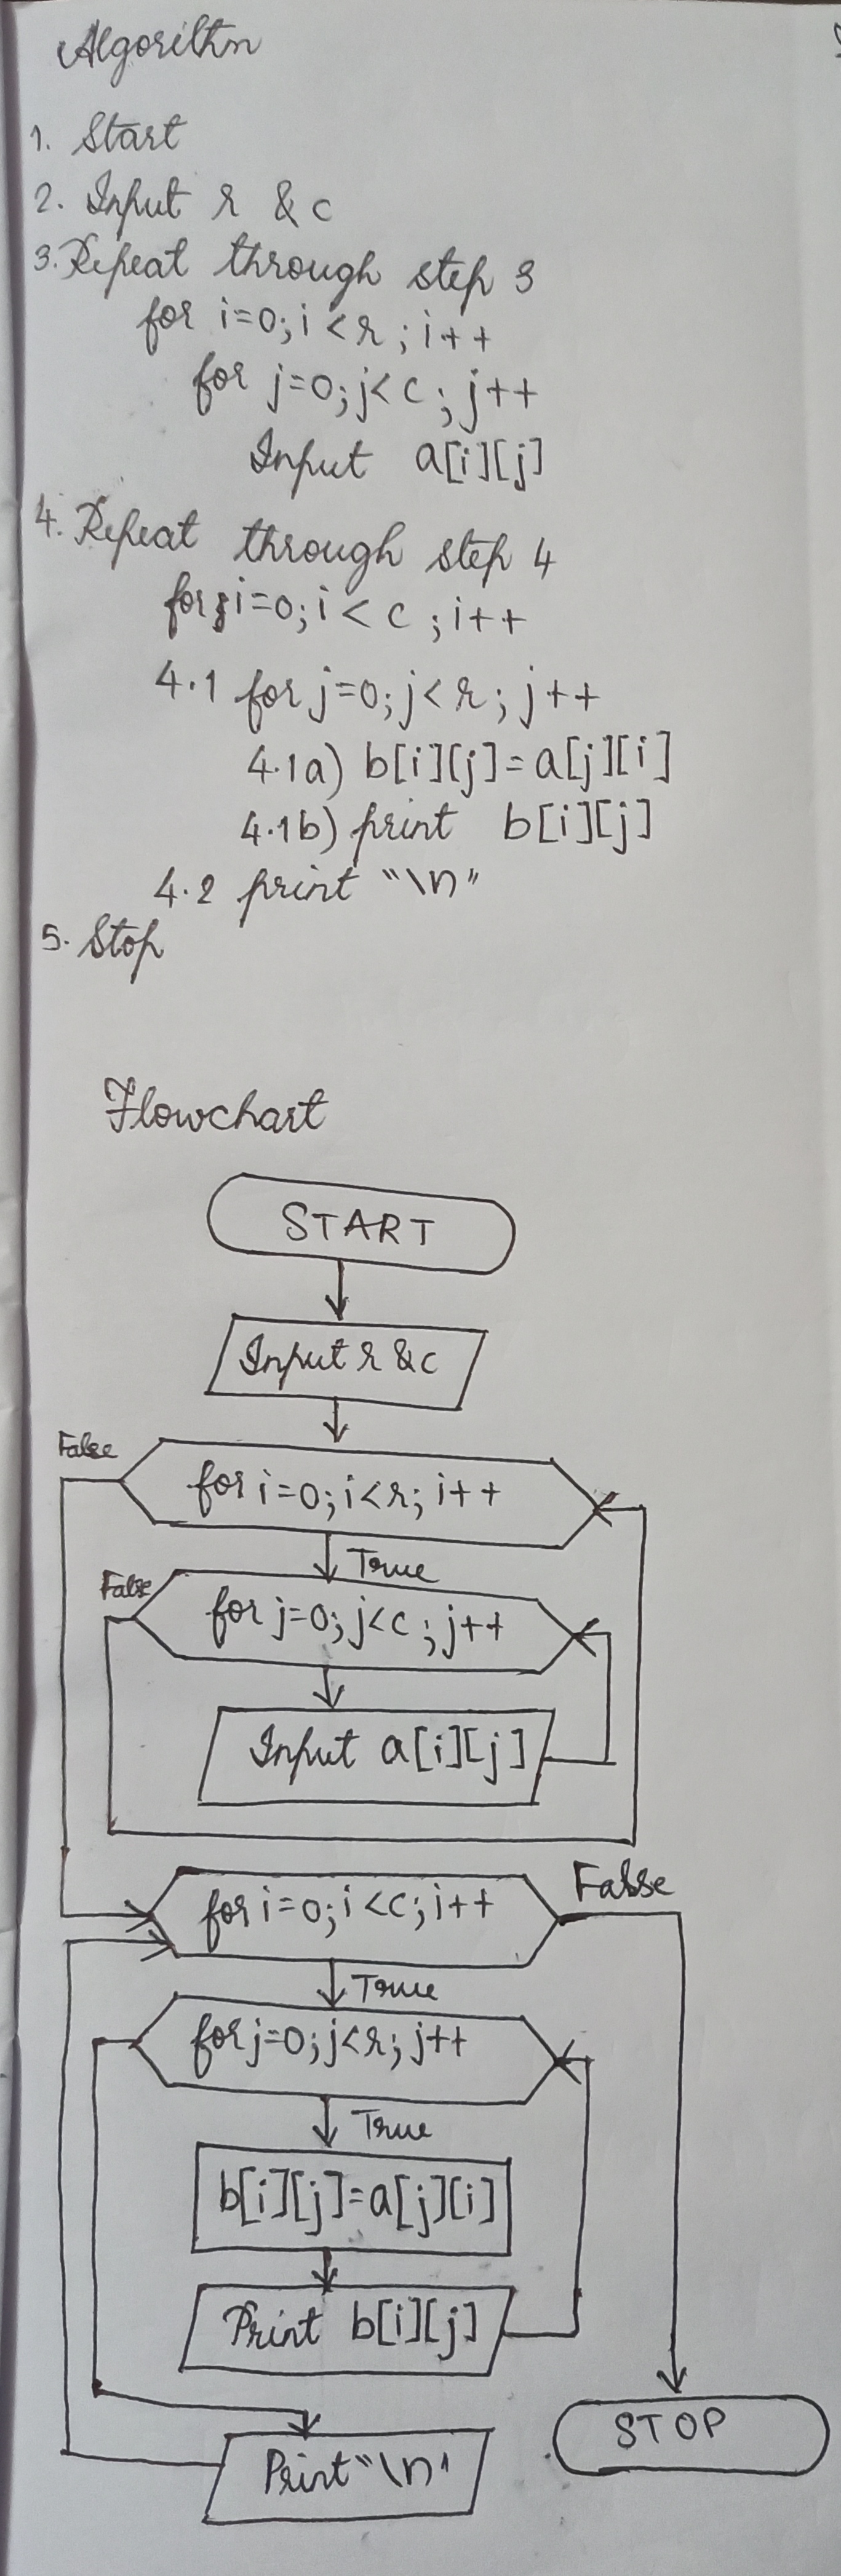 Algorithn
1. Start
2. Input r & c
3. Repeat through step 3
for i=0; i<r; i++
for j=0; j<c; j++
Input a[i][j]
4. Repeat through step 4
for i=0; i<c; i++
4.1 for j=0; j<r; j++
4.1a) b[i][j]=a[j][i]
4.1b) print b[i][j]
4.2 print "\n"
5. Stop
Flowchart
START
Input r &c
False
for i=0; i<r; i++
True
False
for j=0; j<c; j++
Input a[i][j]
for i=0; i<c; i++
False
True
for j=0; j<r; j++
True
b[i][j]=a[j][i]
Print b[i][j]
STOP
Print "\n'